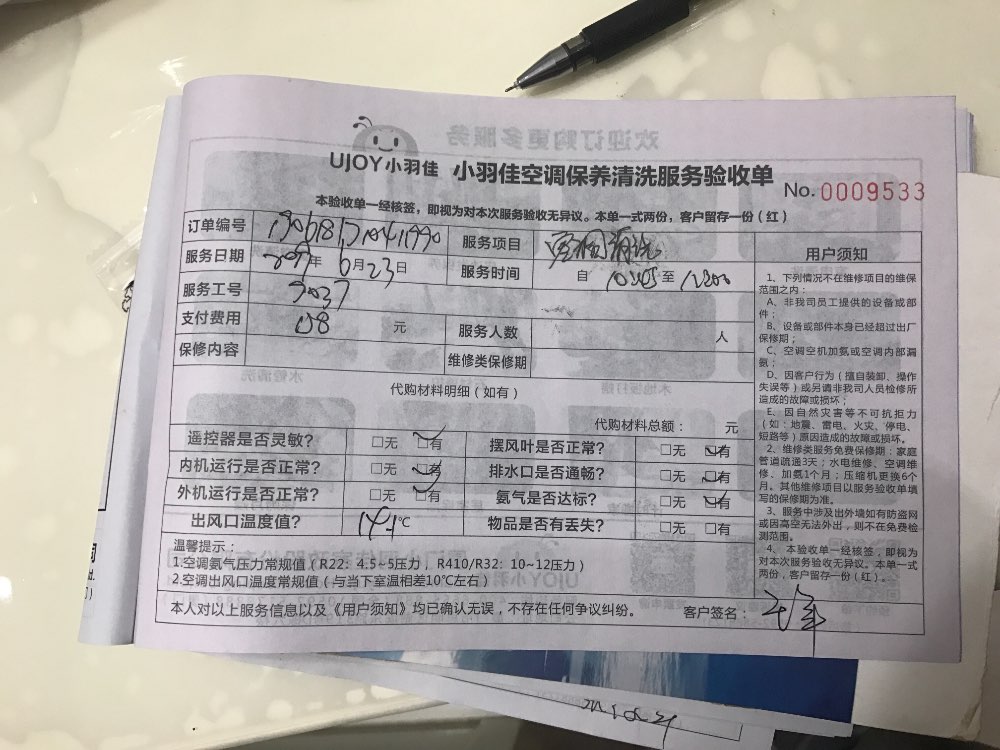 UJOY小羽佳 小羽佳空调保养清洗服务验收单
No. 0009533
本验收单一经核签，即视为对本次服务验收无异议。本单一式两份，客户留存一份（红）
订单编号 服务项目 清洗
服务日期 年 6月23日 服务时间 自 至
服务工号 3037
支付费用 元 服务人数 人
保修内容 维修类保修期
代购材料明细（如有）
代购材料总额： 元
遥控器是否灵敏？ □无 □有 摆风叶是否正常？ □无 □有
内机运行是否正常？ □无 □有 排水口是否通畅？ □无 □有
外机运行是否正常？ □无 □有 氨气是否达标？ □无 □有
出风口温度值？ 14.1℃ 物品是否有丢失？ □无 □有
温馨提示：
1.空调氨气压力常规值（R22：4.5~5压力，R410/R32：10~12压力）
2.空调出风口温度常规值（与当下室温相差10℃左右）
本人对以上服务信息以及《用户须知》均已确认无误，不存在任何争议纠纷。 客户签名：
用户须知
1、下列情况不在维修项目的维保
范围之内：
A、非我司员工提供的设备或部
件；
B、设备或部件本身已经超过出厂
保修期；
C、空调空机加氨或空调内部漏
氨；
D、因客户行为（擅自装卸、操作
失误等）或另请非我司人员检修所
造成的故障或损坏；
E、因自然灾害等不可抗拒力
（如：地震、雷电、火灾、停电、
短路等）原因造成的故障或损坏。
2、维修类服务免费保修期：家庭
管道疏通3天；水电维修、空调维
修、加氨1个月；压缩机更换6个
月。其他维修项目以服务验收单填
写的保修期为准。
3、服务中涉及出外墙如有防盗网
或因高空无法外出，则不在免费检
测范围。
4、本验收单一经核签，即视为
对本次服务验收无异议。本单一式
两份，客户留存一份（红）。